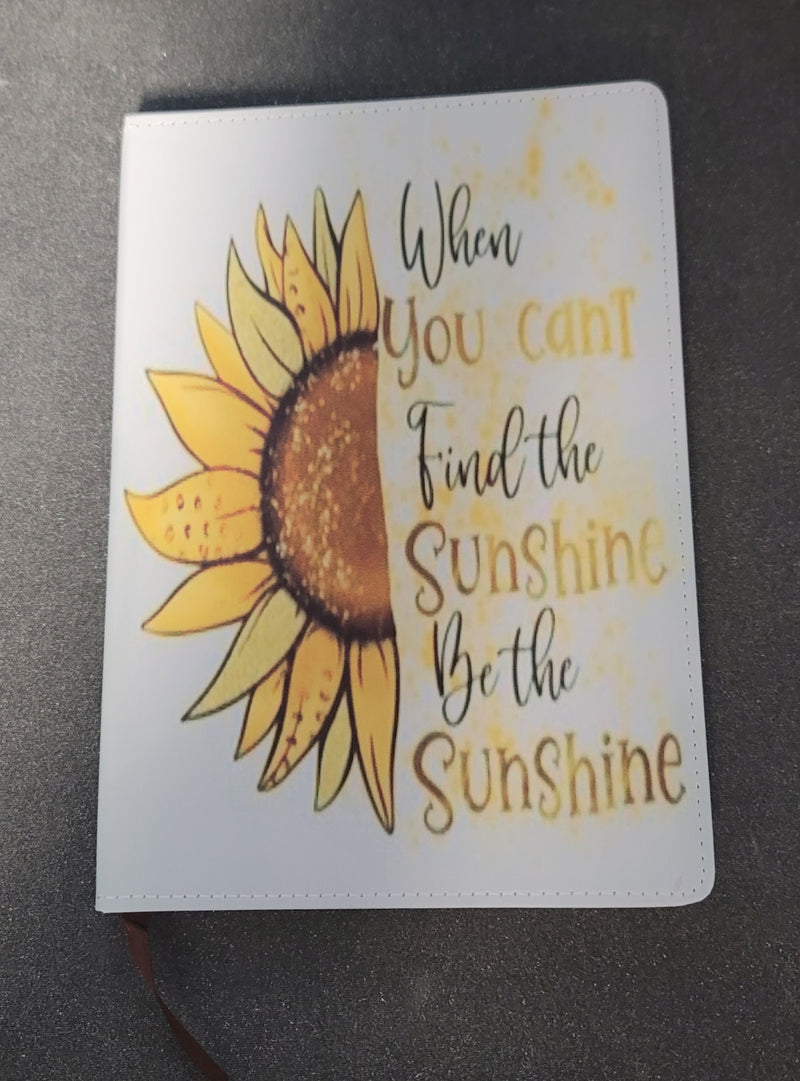 When
You canT
Find the
Sunshine
Be the
Sunshine